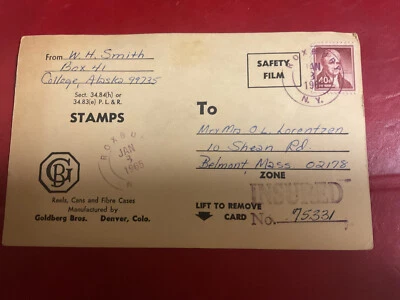 From W. H. Smith
Box 41
College, Alaska 99735
Sect. 34.84(h) or
34.83(e) P. L. & R.
STAMPS
SAFETY
FILM
JAN
N. Y.
To
Mr+Mrs O. L. Lorentzen
10 Shean Rd.
Belmont, Mass. 02178
ZONE
ROXBURY
JAN
1965
GB
Reels, Cans and Fibre Cases
Manufactured by
Goldberg Bros. Denver, Colo.
LIFT TO REMOVE
CARD
INSURED
No. 75331